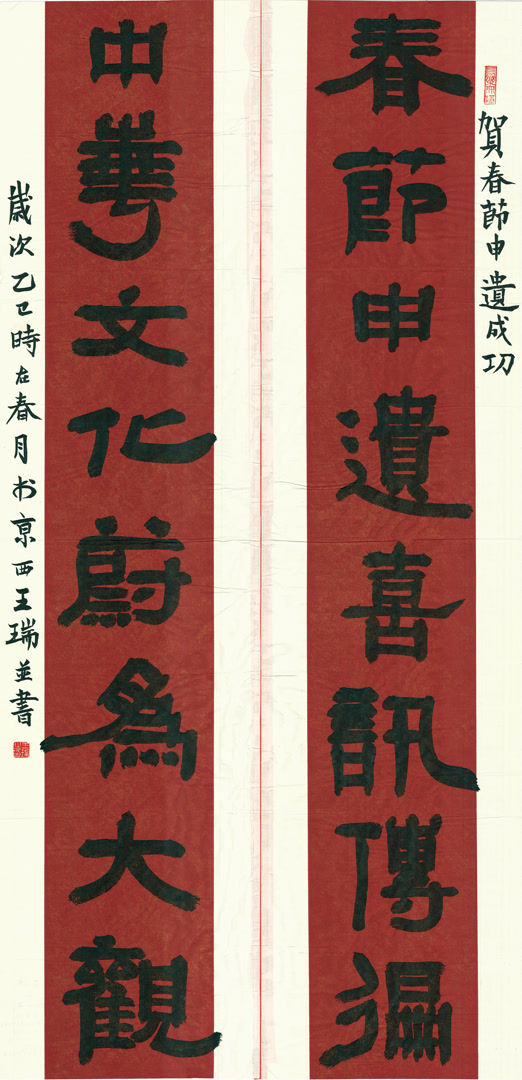 賀春節申遺成功
春節申遺喜訊傳徧
中華文化蔚爲大觀
歲次乙巳時在春月於京西王瑞並書